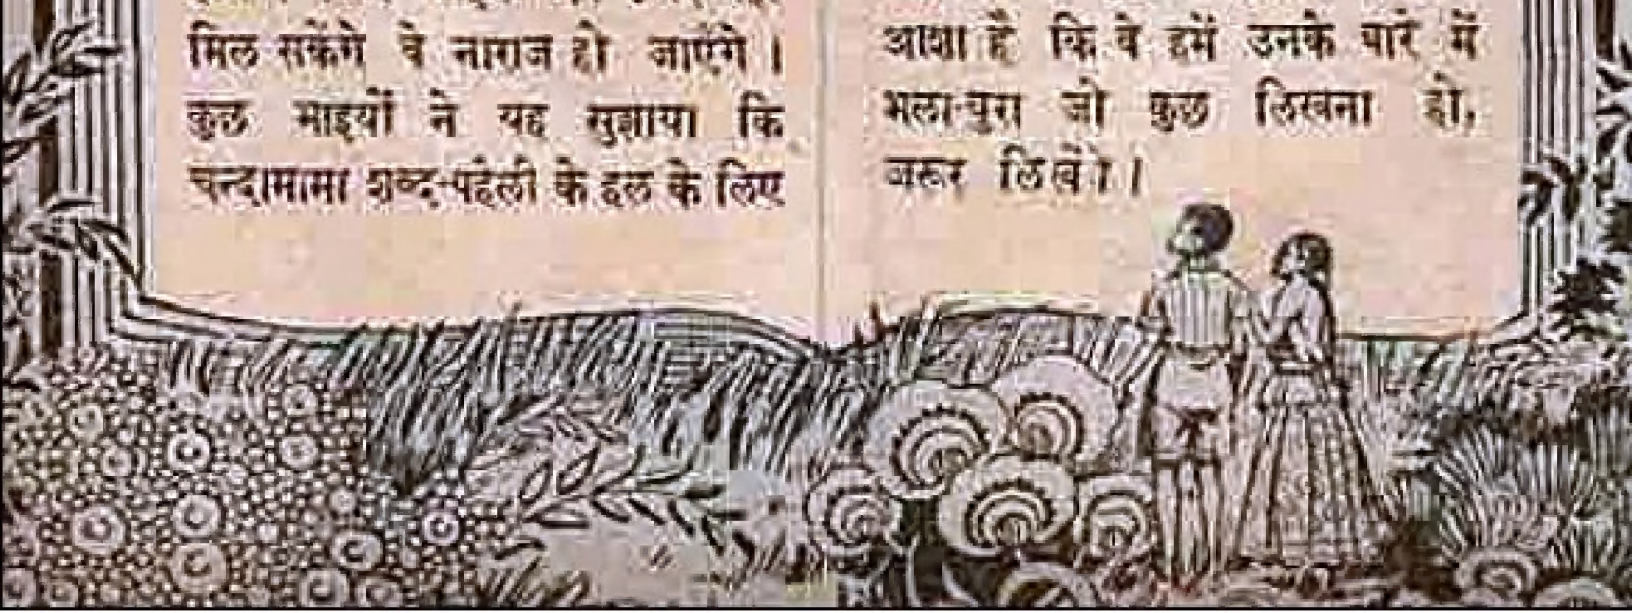 मिल सकेंगे वे नाराज हो जाएंगे ।
कुछ भाइयों ने यह सुझाया कि
चन्दामामा शब्द-पहेली के हल के लिए
आशा है कि वे हमें उनके बारे में
भला-बुरा जो कुछ लिखना हो,
जरूर लिखेंगे ।